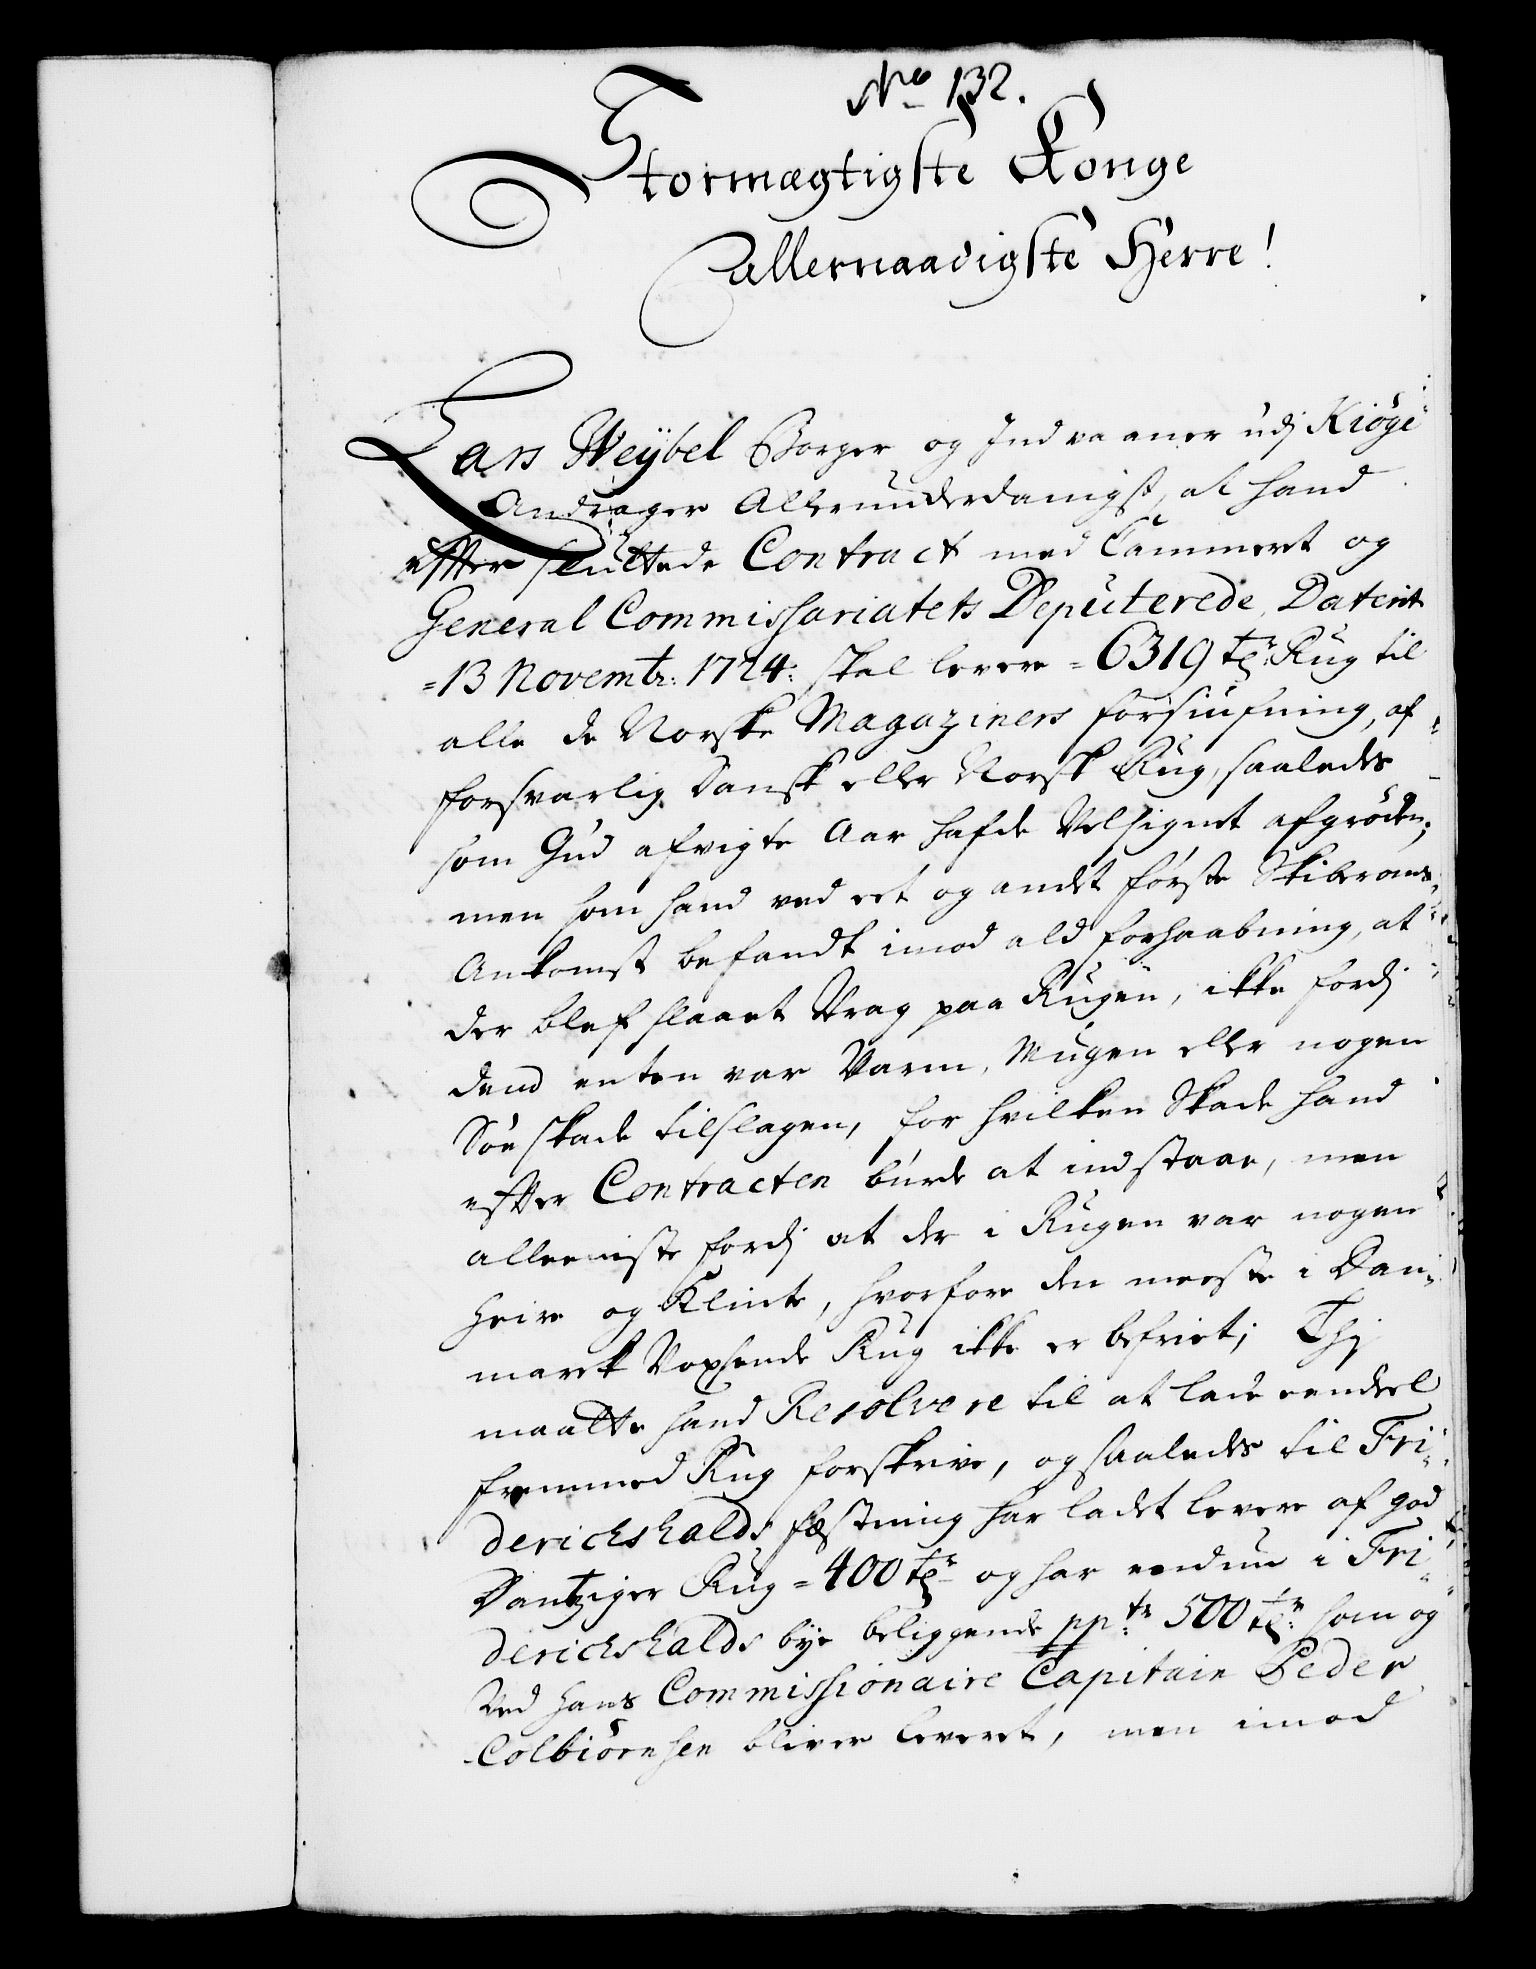 No 132.
Stormægtigste Konge
Allernaadigste Herre!
Lars Weÿbel Borger og Indvaaner udj Kiøge
Andrager Allerunderdanigst, at hand
effter sluttede Contract med Cammeret og
General Commissariatets Deputerede, Daterit
=13 Novembr: 1724: skal levere =6319 tdr: Rug til
alle de Norske Magaziners forsiufning, af
forsvarlig Dansk eller Norsk Rug, saaledes
som Gud afvigte Aar hafde Velsignet afgrøden;
men som hand ved eet og andet første Skiberoms
Ankomst befandt imod ald forhaabning, at
der blef slaaet Vrag paa Rugen, ikke fordj
dend enten var Varm, Muggen eller nogen
Søe skade tilslagen, for hvilken Skade hand
effter Contracten burde at indstaae, men
alleeniste fordj at der i Rugen var nogen
Heire og Klinte, hvorfore den meeste i Dan-
mark Voxende Rug ikke er befriet; Thj
maatte hand Resolvere til at lade eendeel
fremmed Rug forskrive, og saaledes til Fri-
derichshalds fæstning har ladet levere af god
Dantziger Rug =400 tdr og har endnu i Fri-
derichshalds bÿe beliggende pptr 500 tdr: som og
Ved hans Commissionaire Capitain Peder
Colbiørnsen bliver leveret, men imod